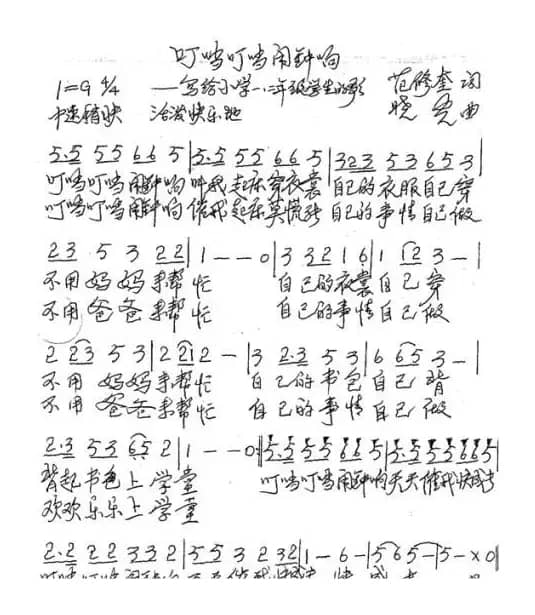 叮当叮当闹钟响
1=G 4/4 ——写给小学一、二年级学生的歌 范修奎 词
中速稍快 活泼快乐地 晓 亮 曲
5.5 5 5 6 6 5 | 5.5 5 5 6 6 5 | 3 2 3 5 3 6 5 3 |
叮当叮当闹钟响 叫我起床穿衣裳 自己的衣服自己穿
叮当叮当闹钟响 催我起床莫慌张 自己的事情自己做
2 3 5 3 2 2 | 1 - - 0 | 3 3 2 1 6 | 1 1 2 3 - |
不用妈妈来帮忙 自己的衣裳自己穿
不用爸爸来帮忙 自己的事情自己做
2 2 3 5 3 | 2 2 1 2 - | 3 2.3 5 3 | 6 6 5 3 - |
不用妈妈来帮忙 自己的书包自己背
不用爸爸来帮忙 自己的事情自己做
2.3 5 3 6 5 2 | 1 - - 0 :‖ 5.5 5 5 6 6 5 | 5.5 5 5 6 6 5 |
背起书包上学堂 叮当叮当闹钟响天天催我快成长
欢欢乐乐上学堂
2.2 2 2 3 3 2 | 5 5 3 2 3 2 | 1 - 6 - | 5 6 5 - | 5 - X 0 |